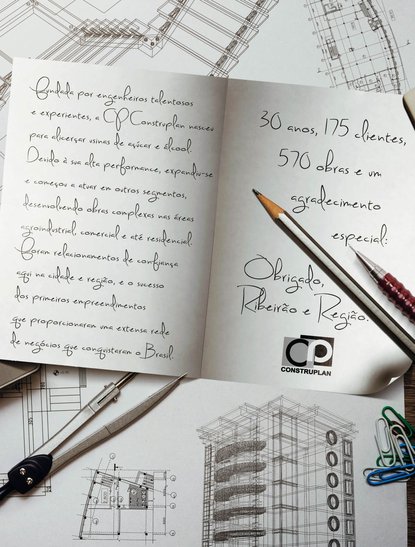 Fundada por engenheiros talentosos
e experientes, a CP Construplan nasceu
para alicerçar usinas de açúcar e álcool.
Devido à sua alta performance, expandiu-se
e começou a atuar em outros segmentos,
desenvolvendo obras complexas nas áreas
agroindustrial, comercial e até residencial.
Foram relacionamentos de confiança
aqui na cidade e região, e o sucesso
dos primeiros empreendimentos
que proporcionaram uma extensa rede
de negócios que conquistaram o Brasil.
30 anos, 175 clientes,
570 obras e um
agradecimento
especial:
Obrigado,
Ribeirão e Região.
CP
CONSTRUPLAN